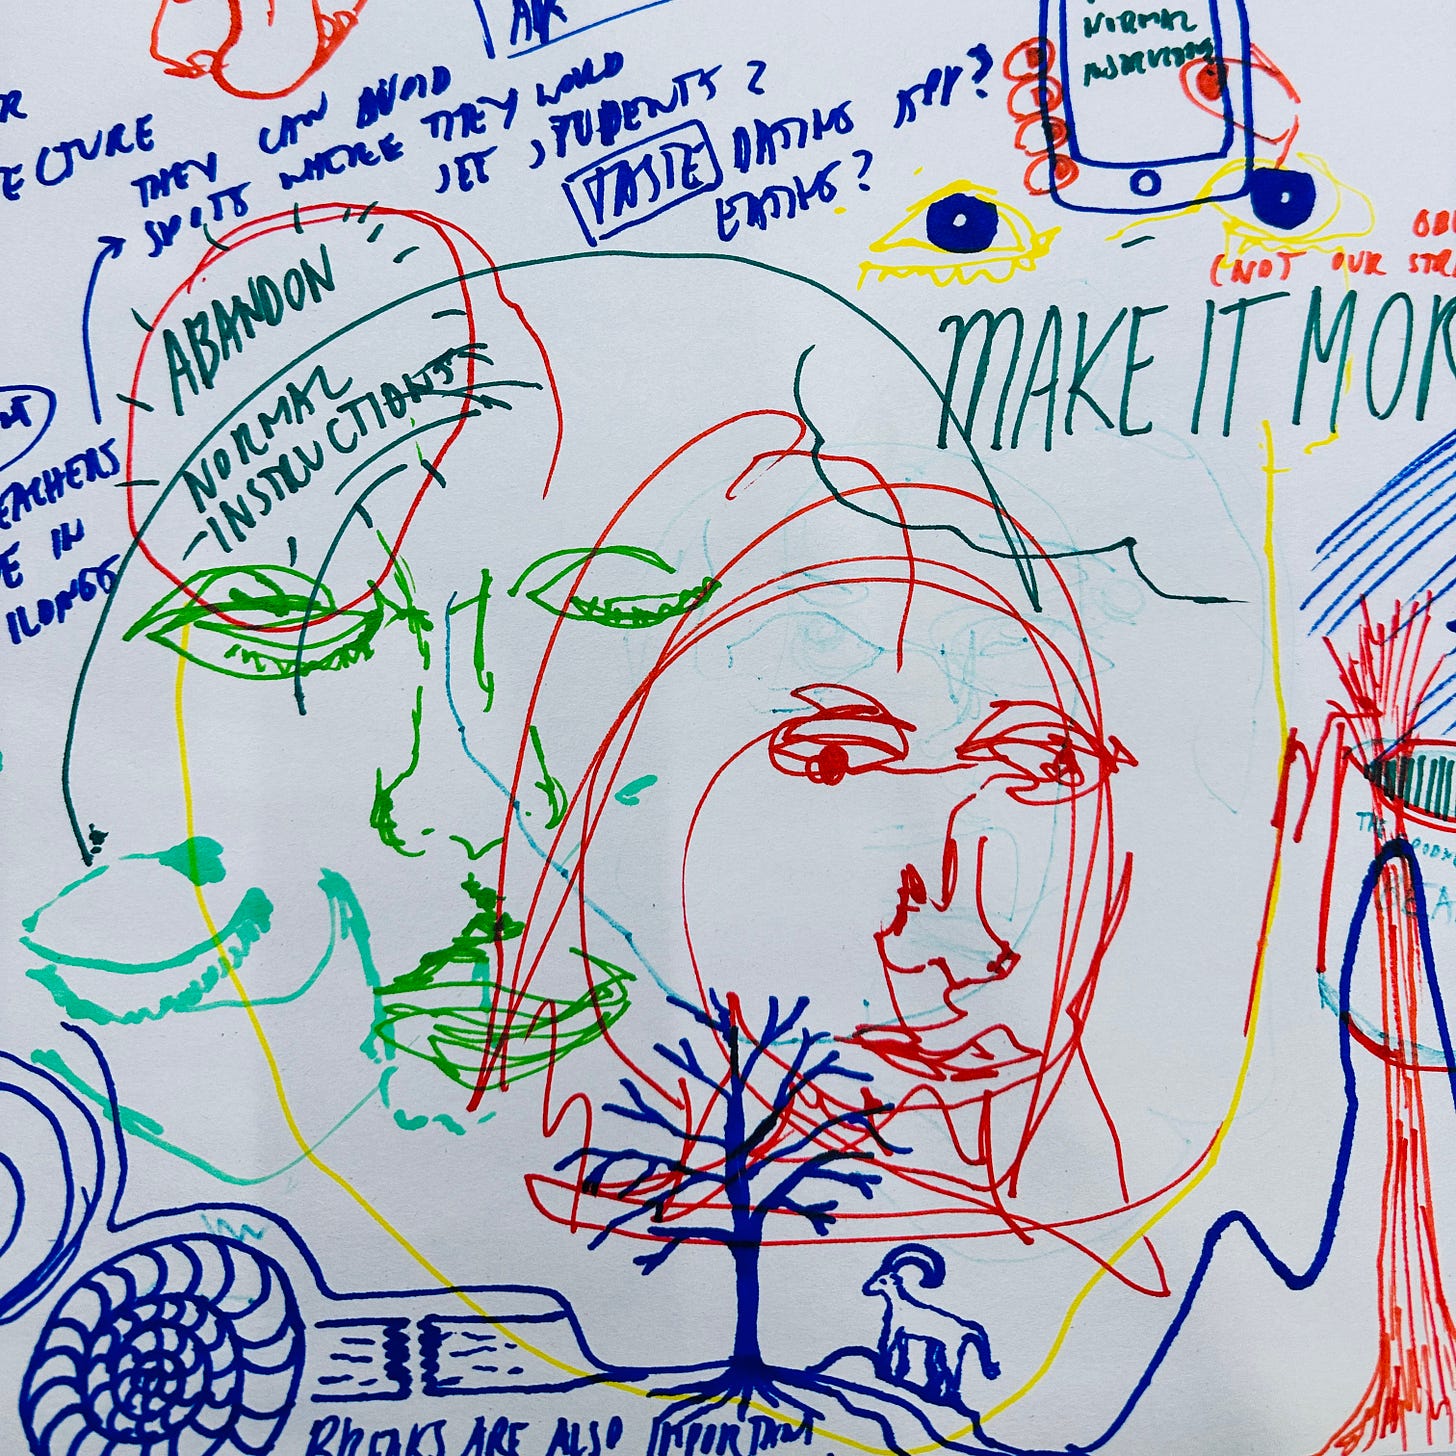 AIR
NORMAL
R
ECTURE
THEY CAN AVOID
SPOTS WHERE THEY WOULD
SEE STUDENTS?
TASTE DATING APP?
EATING?
(NOT OUR STR
MAKE IT MOR
ABANDON
NORMAL
-INSTRUCTIONS
EACHERS
E IN
THE
BREAKS ARE ALSO IMPORTANT